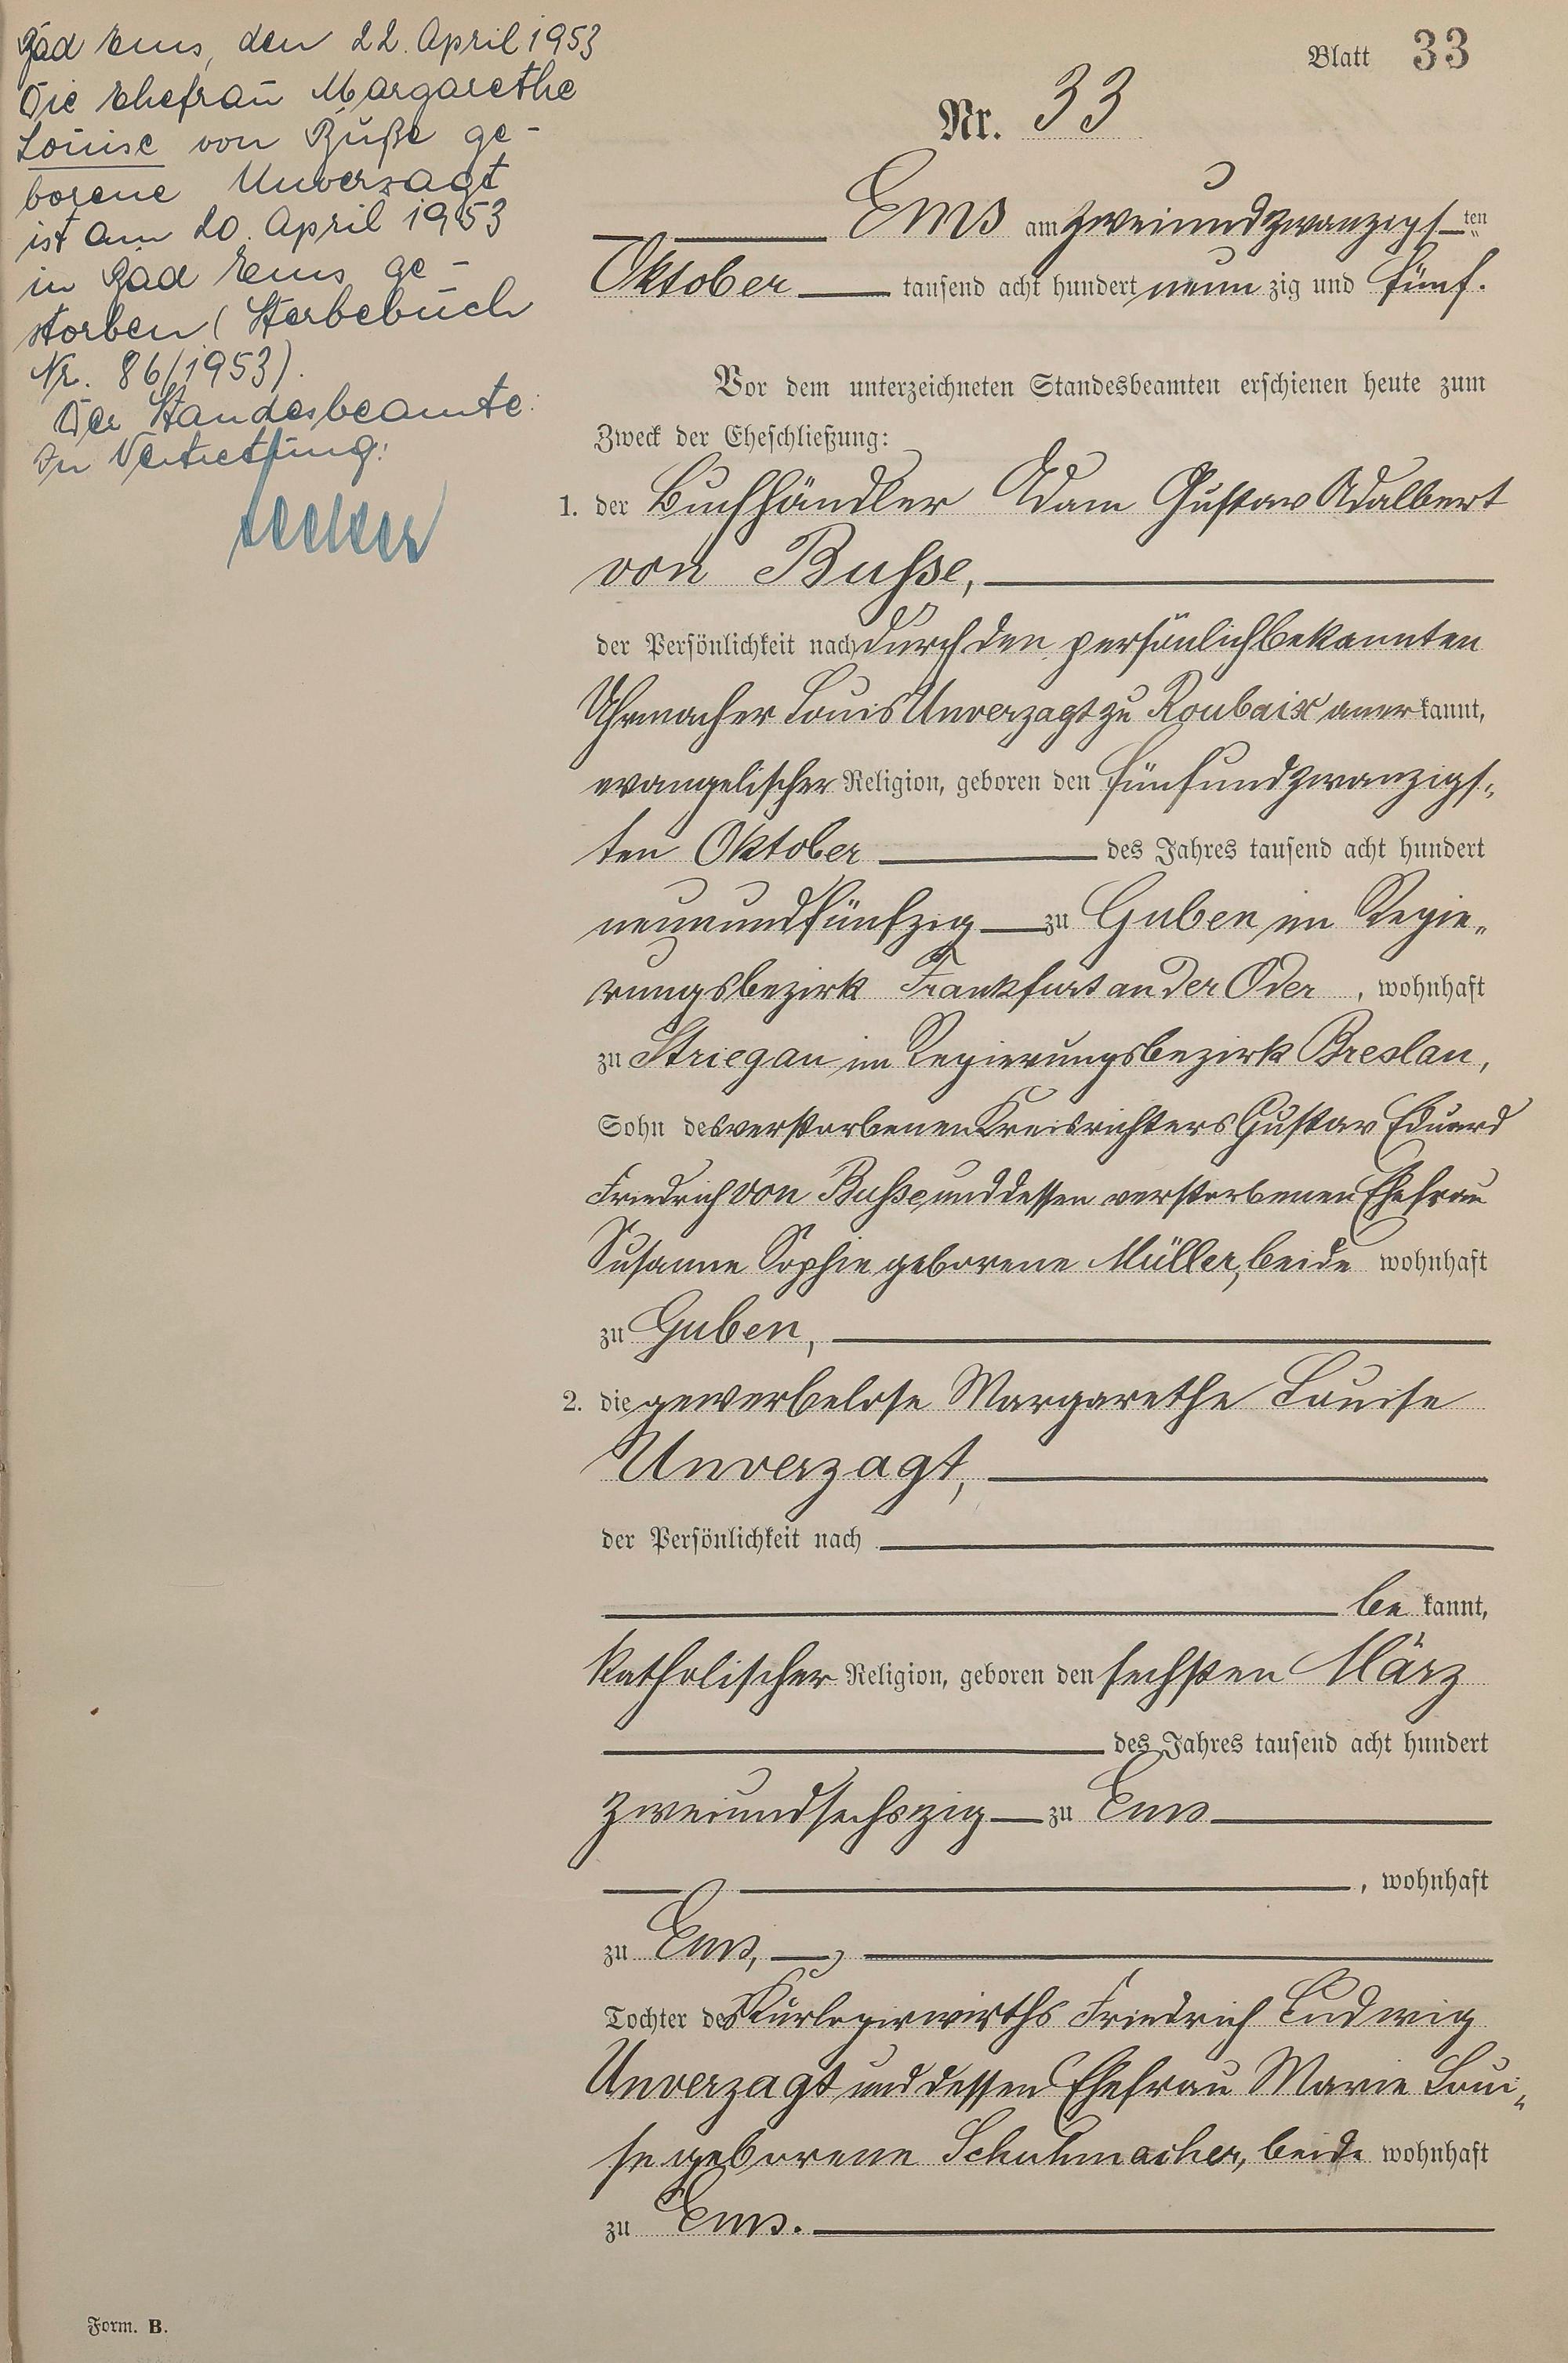 Bad Ems, den 22. April 1953
Die Ehefrau Margarethe
Louise von Buße ge-
borene Unverzagt
ist am 20. April 1953
in Bad Ems ge-
storben (Sterbebuch
Nr. 86/1953).
Der Standesbeamte:
In Vertretung:
Blatt 33
Nr. 33
Ems am zweiundzwanzigsten
Oktober tausend acht hundert neunzig und fünf.
Vor dem unterzeichneten Standesbeamten erschienen heute zum
Zweck der Eheschließung:
1. der Buchhändler Adam Gustav Adalbert
von Busse,
der Persönlichkeit nach durch den persönlich bekannten
Uhrmacher Louis Unverzagt zu Roubaix anerkannt,
evangelischer Religion, geboren den fünfundzwanzigs-
ten Oktober des Jahres tausend acht hundert
neunundfünfzig zu Guben im Regie-
rungsbezirk Frankfurt an der Oder, wohnhaft
zu Striegau im Regierungsbezirk Breslau,
Sohn des verstorbenen Kreisrichters Gustav Eduard
Friedrich von Busse, und dessen verstorbenen Ehefrau
Susanne Sophie geborene Müller, beide wohnhaft
zu Guben,
2. die gewerbelose Margarethe Louise
Unverzagt,
der Persönlichkeit nach
bekannt,
katholischer Religion, geboren den sechsten März
des Jahres tausend acht hundert
zweiundsechszig zu Ems
, wohnhaft
zu Ems,
Tochter des Kurlogirwirths Friedrich Ludwig
Unverzagt und dessen Ehefrau Marie Loui-
se geborene Schuhmacher, beide wohnhaft
zu Ems.
Form. B.